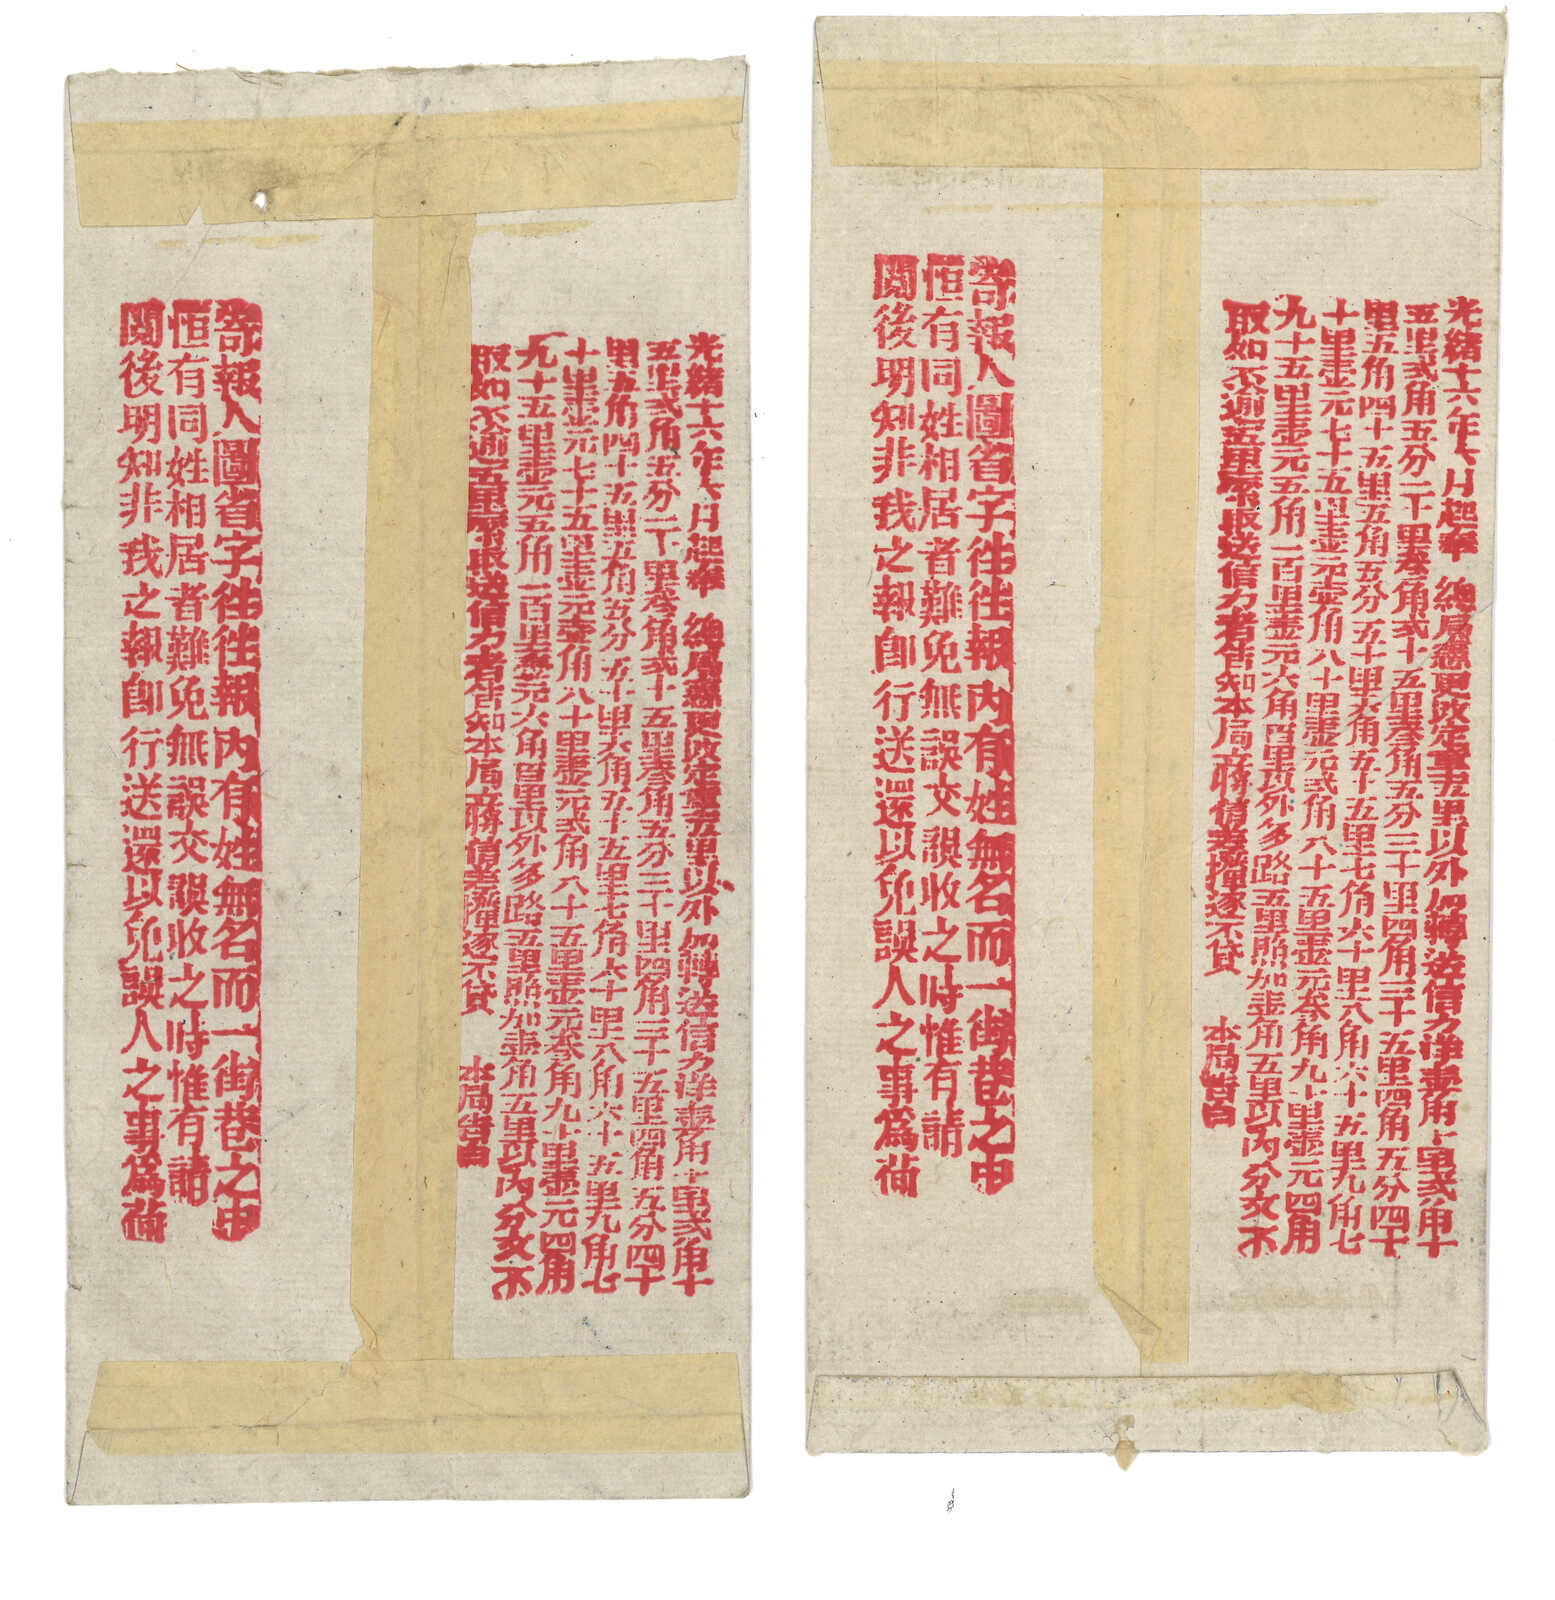 光緒十六年六月起奉 總局憲更改定章五里以外加轉送信力洋壹角十里弍角十
五里弍角五分二十里叁角弍十五里叁角五分三十里四角三十五里四角五分四十
里五角四十五里五角五分五十里六角五十五里七角六十里八角六十五里九角七
十里壹元七十五里壹元壹角八十里壹元弍角八十五里壹元叁角九十里壹元四角
九十五里壹元五角一百里壹元六角百里以外多路五里照加壹角五里以內分文不
取如不逾五里報送信力者告知本局立將信差攆逐不貸 本局告白
寄報人圖省字往往報內有姓無名而一街巷之中
恒有同姓相居者難免無誤交誤收之時惟有請
閱後明知非我之報卽行送還以免誤人之事爲荷
光緒十六年六月起奉 總局憲更改定章五里以外加轉送信力洋壹角十里弍角十
五里弍角五分二十里叁角弍十五里叁角五分三十里四角三十五里四角五分四十
里五角四十五里五角五分五十里六角五十五里七角六十里八角六十五里九角七
十里壹元七十五里壹元壹角八十里壹元弍角八十五里壹元叁角九十里壹元四角
九十五里壹元五角一百里壹元六角百里以外多路五里照加壹角五里以內分文不
取如不逾五里報送信力者告知本局立將信差攆逐不貸 本局告白
寄報人圖省字往往報內有姓無名而一街巷之中
恒有同姓相居者難免無誤交誤收之時惟有請
閱後明知非我之報卽行送還以免誤人之事爲荷